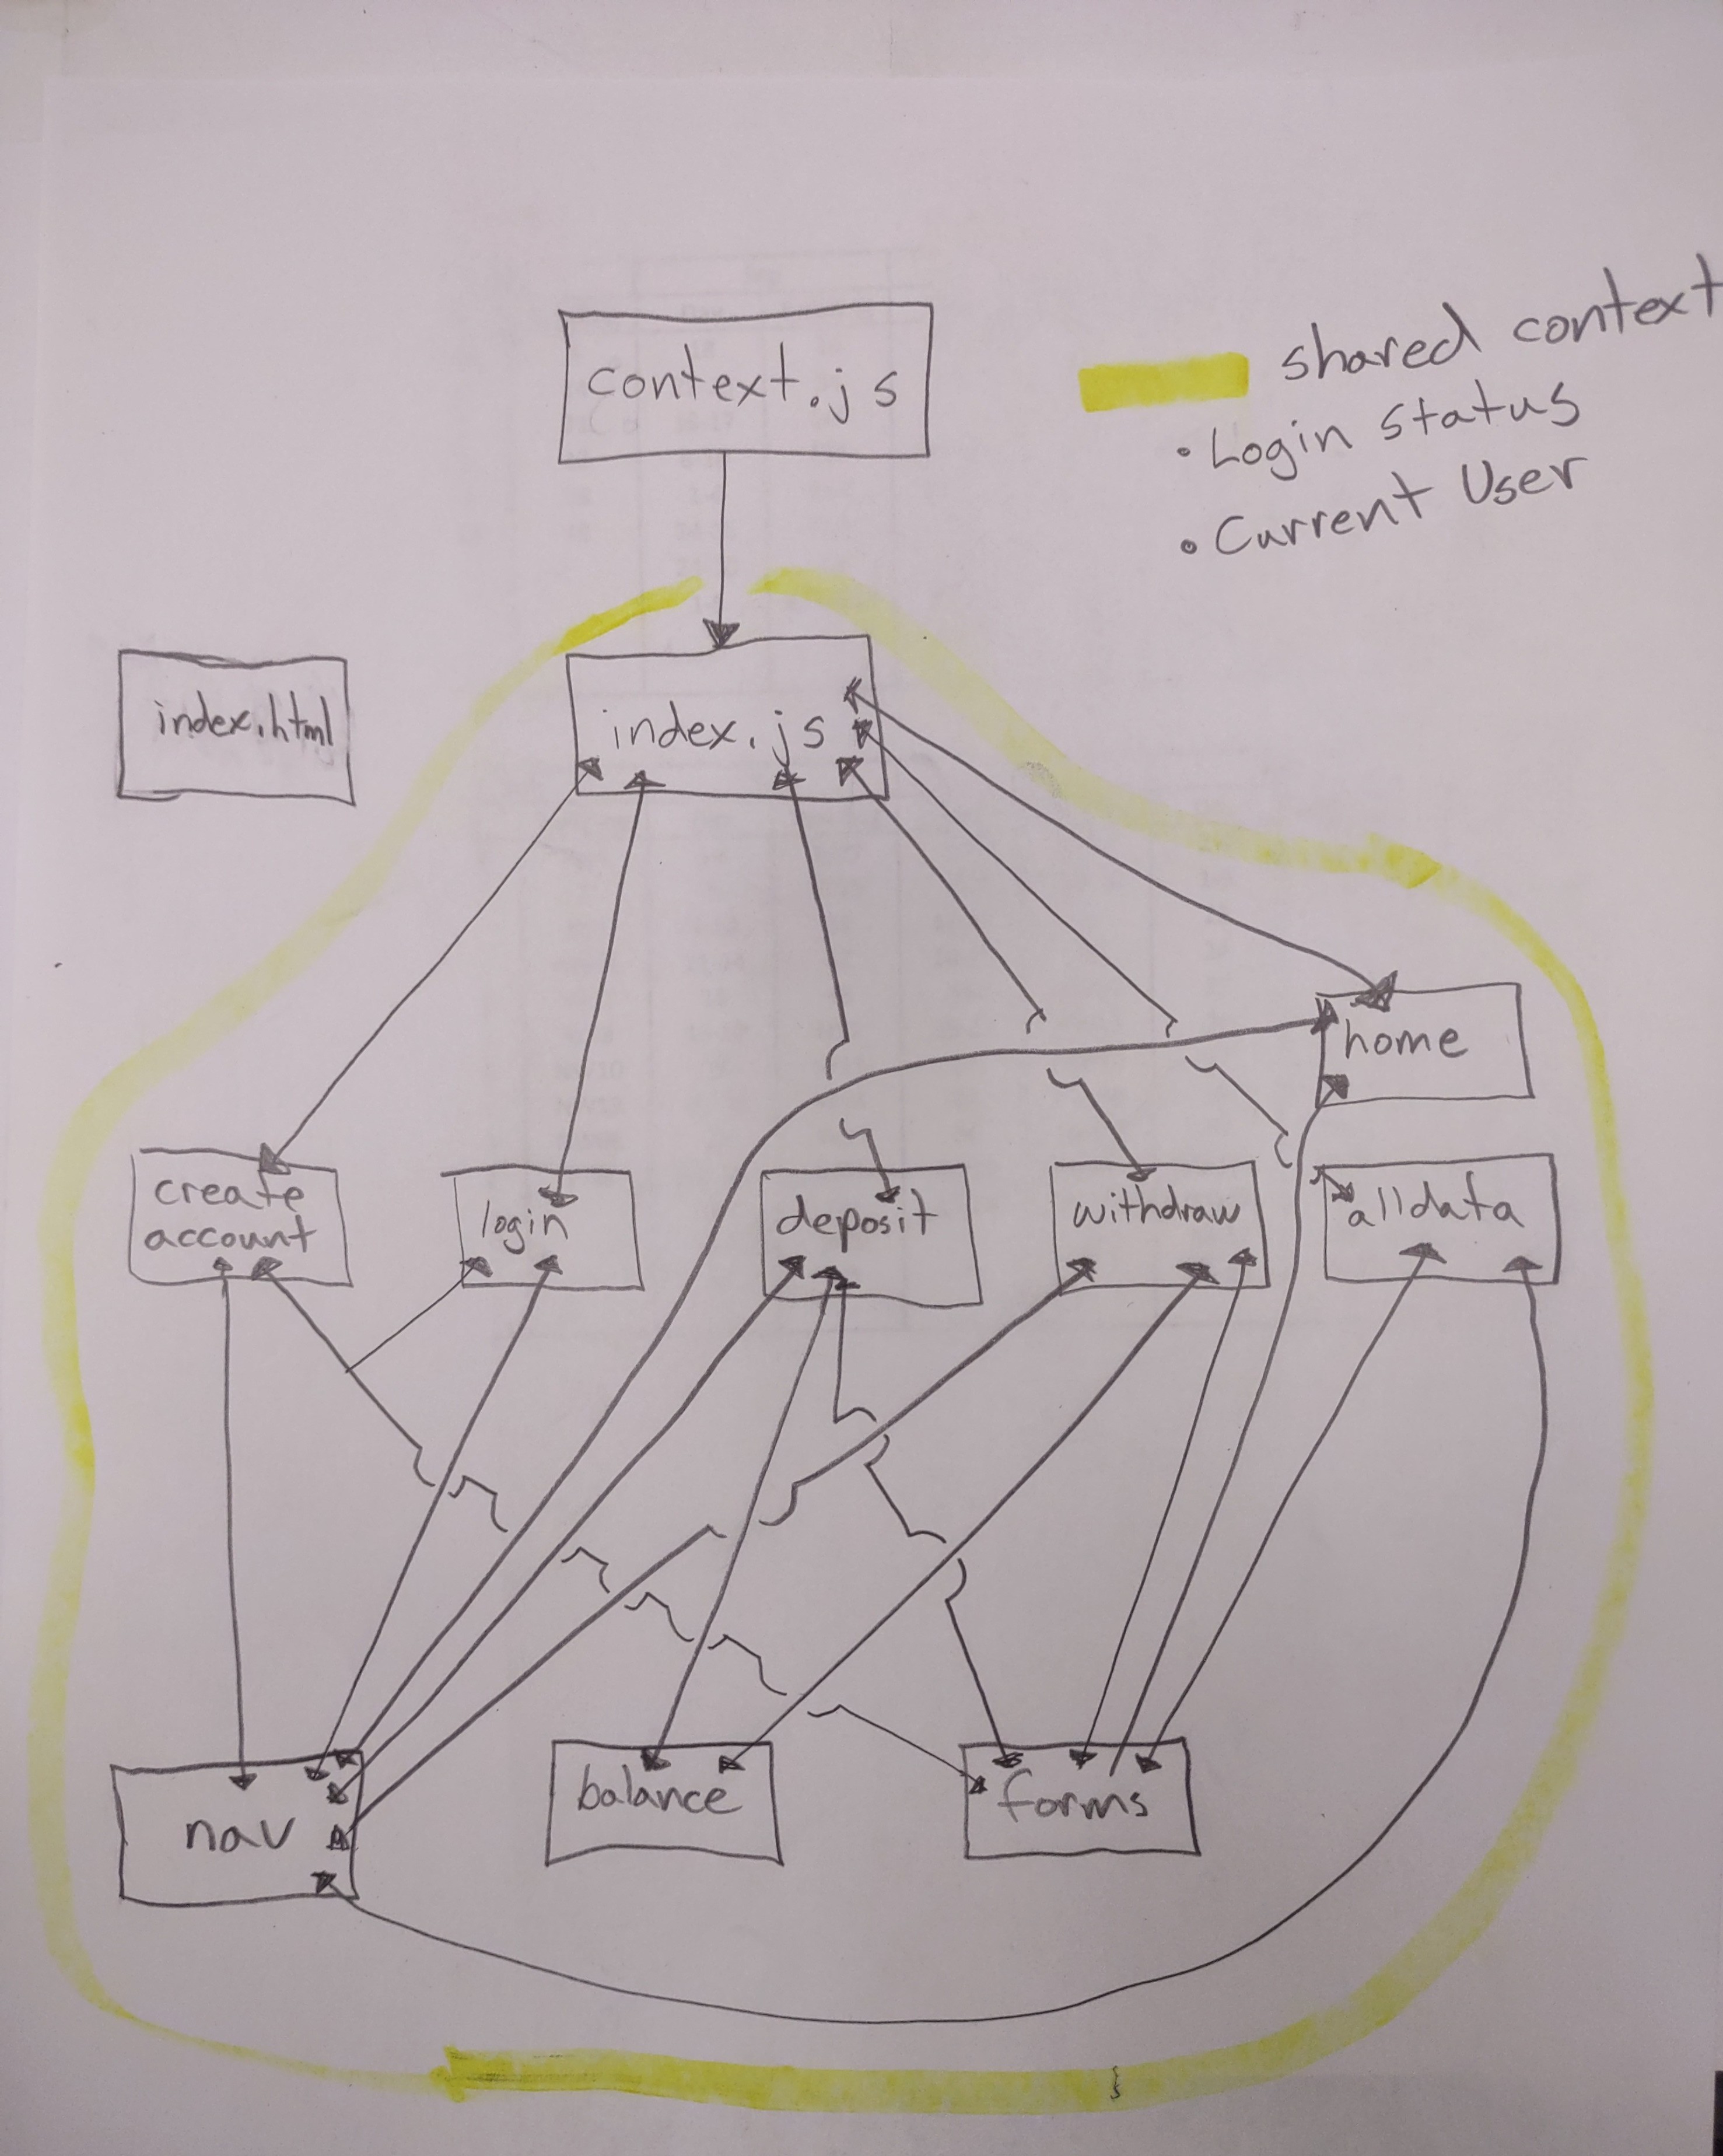 context.js
shared context
• Login status
• Current User
index.html
index.js
home
create
account
login
deposit
withdraw
alldata
nav
balance
forms